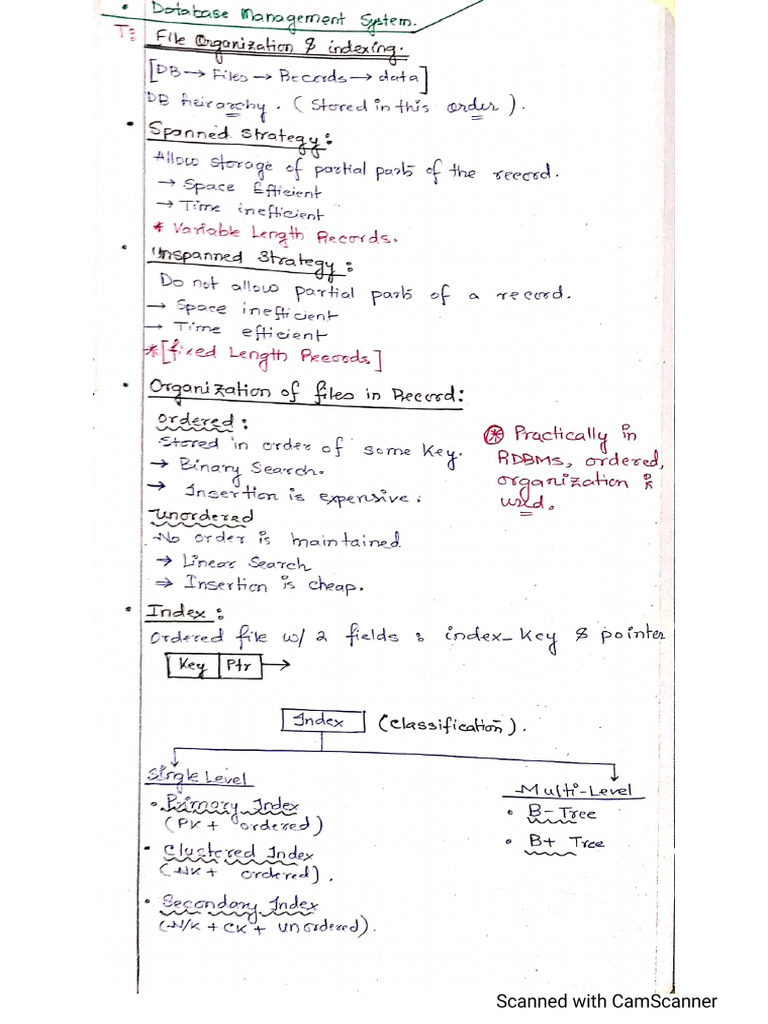 • Database Management System.
T: File Organization & indexing.
[DB → Files → Records → data]
DB heirarchy. (Stored in this order).
• Spanned Strategy:
Allow storage of partial parts of the record.
→ Space Efficient
→ Time inefficient
* Variable Length Records.
• Unspanned Strategy:
Do not allow partial parts of a record.
→ Space inefficient
→ Time efficient
*[fixed Length Records]
• Organization of files in Record:
Ordered:
Stored in order of some Key.
→ Binary Search.
→ Insertion is expensive.
* Practically in
RDBMS, ordered,
organization is
used.
Unordered
No order is maintained
→ Linear Search
⇒ Insertion is cheap.
• Index:
Ordered file w/ 2 fields : index_Key & pointer
Key Ptr →
Index (classification).
Single Level
• Primary Index
(PK + ordered)
• Clustered Index
(NK + ordered).
• Secondary Index
(N/K + CK + unordered).
Multi-Level
• B-Tree
• B+ Tree
Scanned with CamScanner